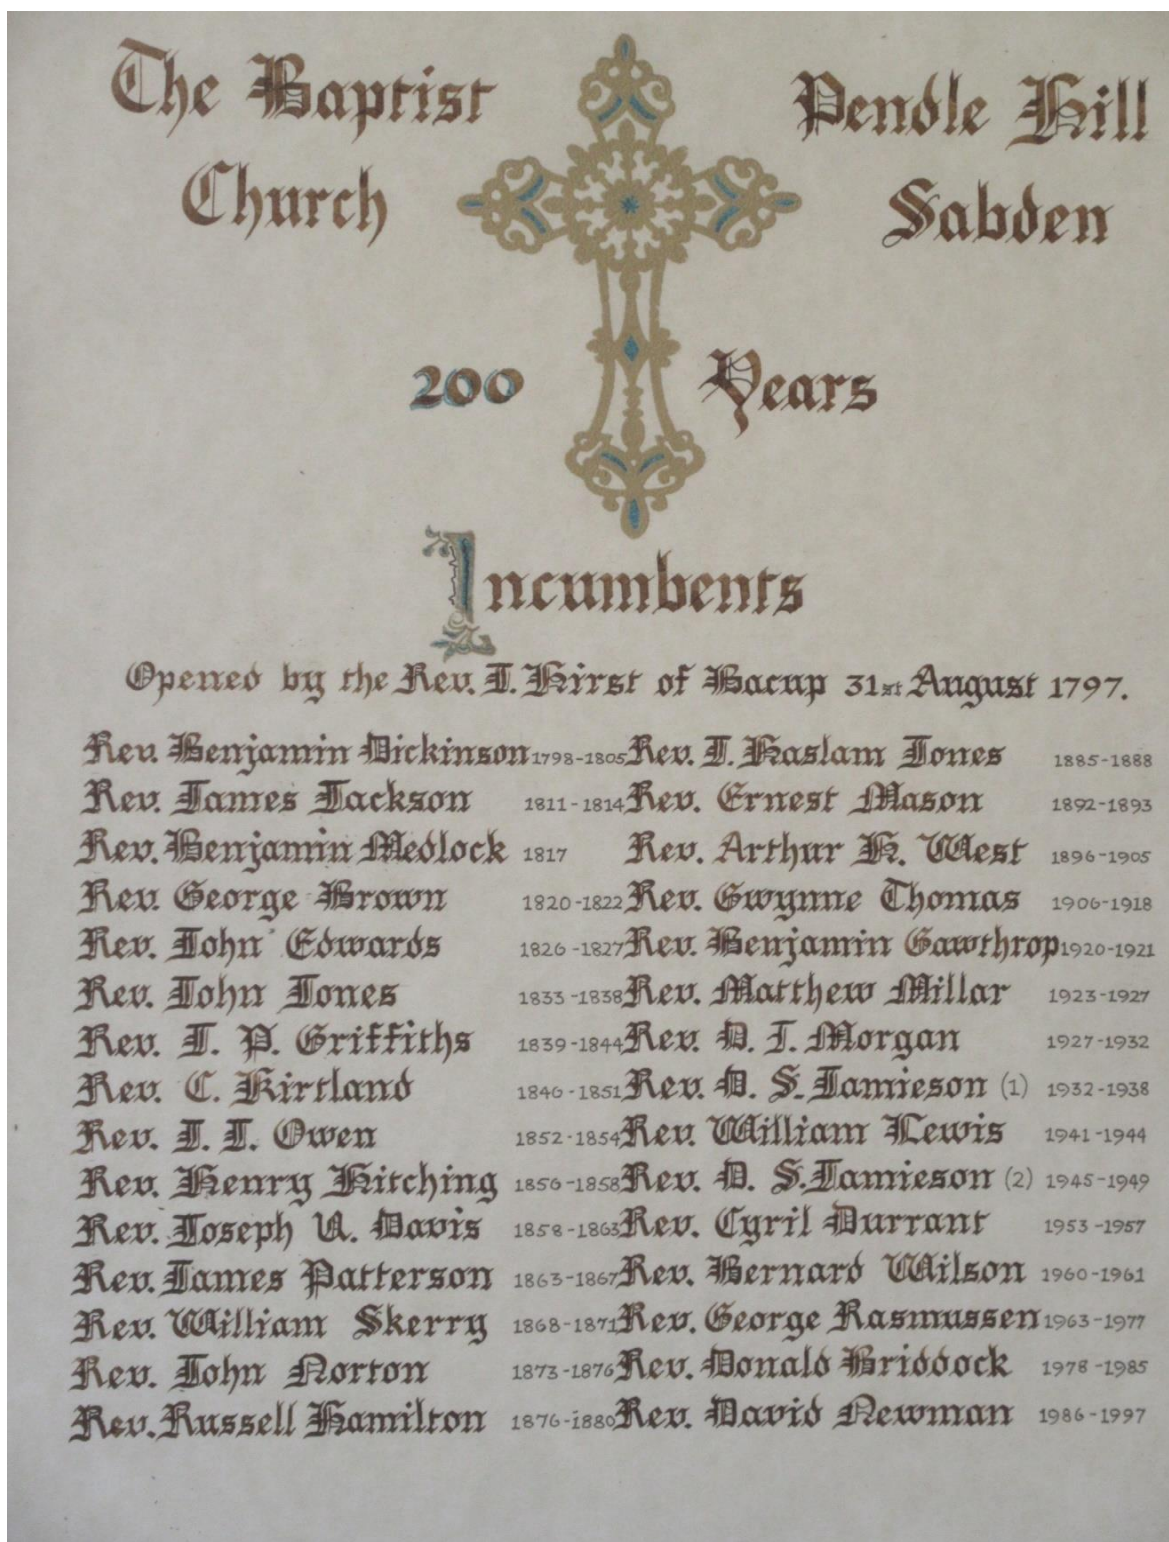 The Baptist
Church
Pendle Hill
Sabden
200 Years
Incumbents
Opened by the Rev. J. Hirst of Bacup 31st August 1797.
Rev. Benjamin Dickinson 1798-1805
Rev. James Jackson 1811-1814
Rev. Benjamin Medlock 1817
Rev. George Brown 1820-1822
Rev. John Edwards 1826-1827
Rev. John Jones 1833-1838
Rev. J. P. Griffiths 1839-1844
Rev. C. Kirtland 1846-1851
Rev. J. J. Owen 1852-1854
Rev. Henry Hitching 1856-1858
Rev. Joseph U. Davis 1858-1863
Rev. James Patterson 1863-1867
Rev. William Skerry 1868-1871
Rev. John Norton 1873-1876
Rev. Russell Hamilton 1876-1880
Rev. J. Haslam Jones 1885-1888
Rev. Ernest Mason 1892-1893
Rev. Arthur H. West 1896-1905
Rev. Gwynne Thomas 1906-1918
Rev. Benjamin Gawthrop 1920-1921
Rev. Matthew Millar 1923-1927
Rev. D. J. Morgan 1927-1932
Rev. D. S. Jamieson (1) 1932-1938
Rev. William Lewis 1941-1944
Rev. D. S. Jamieson (2) 1945-1949
Rev. Cyril Durrant 1953-1957
Rev. Bernard Wilson 1960-1961
Rev. George Rasmussen 1963-1977
Rev. Donald Briddock 1978-1985
Rev. David Newman 1986-1997